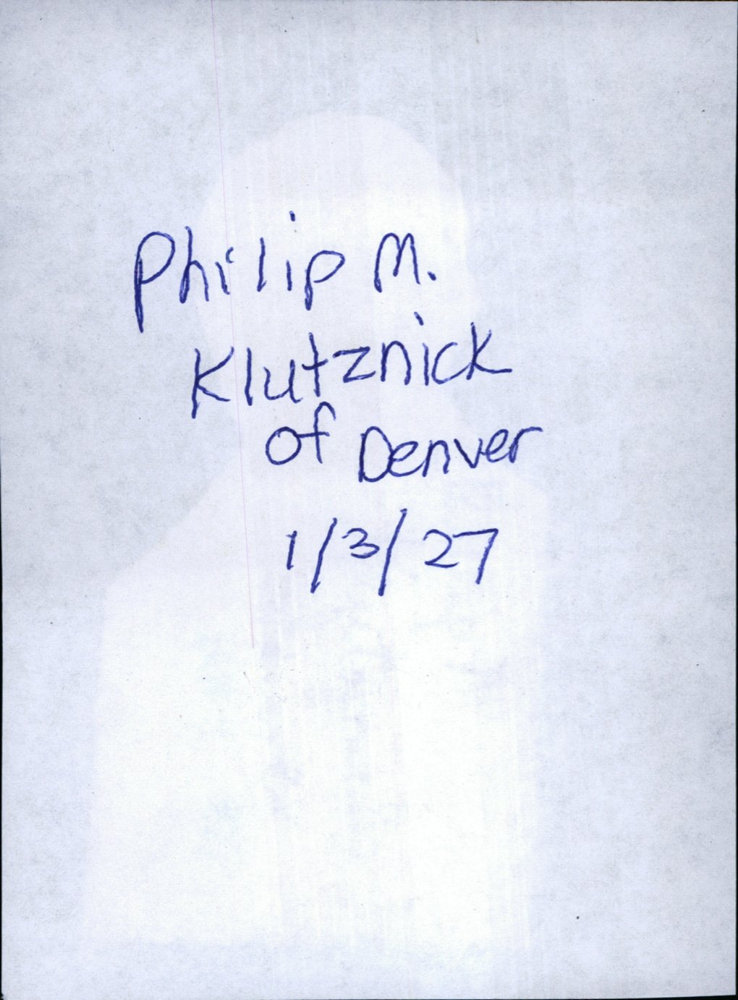 Philip M.
Klutznick
of Denver
1/3/27